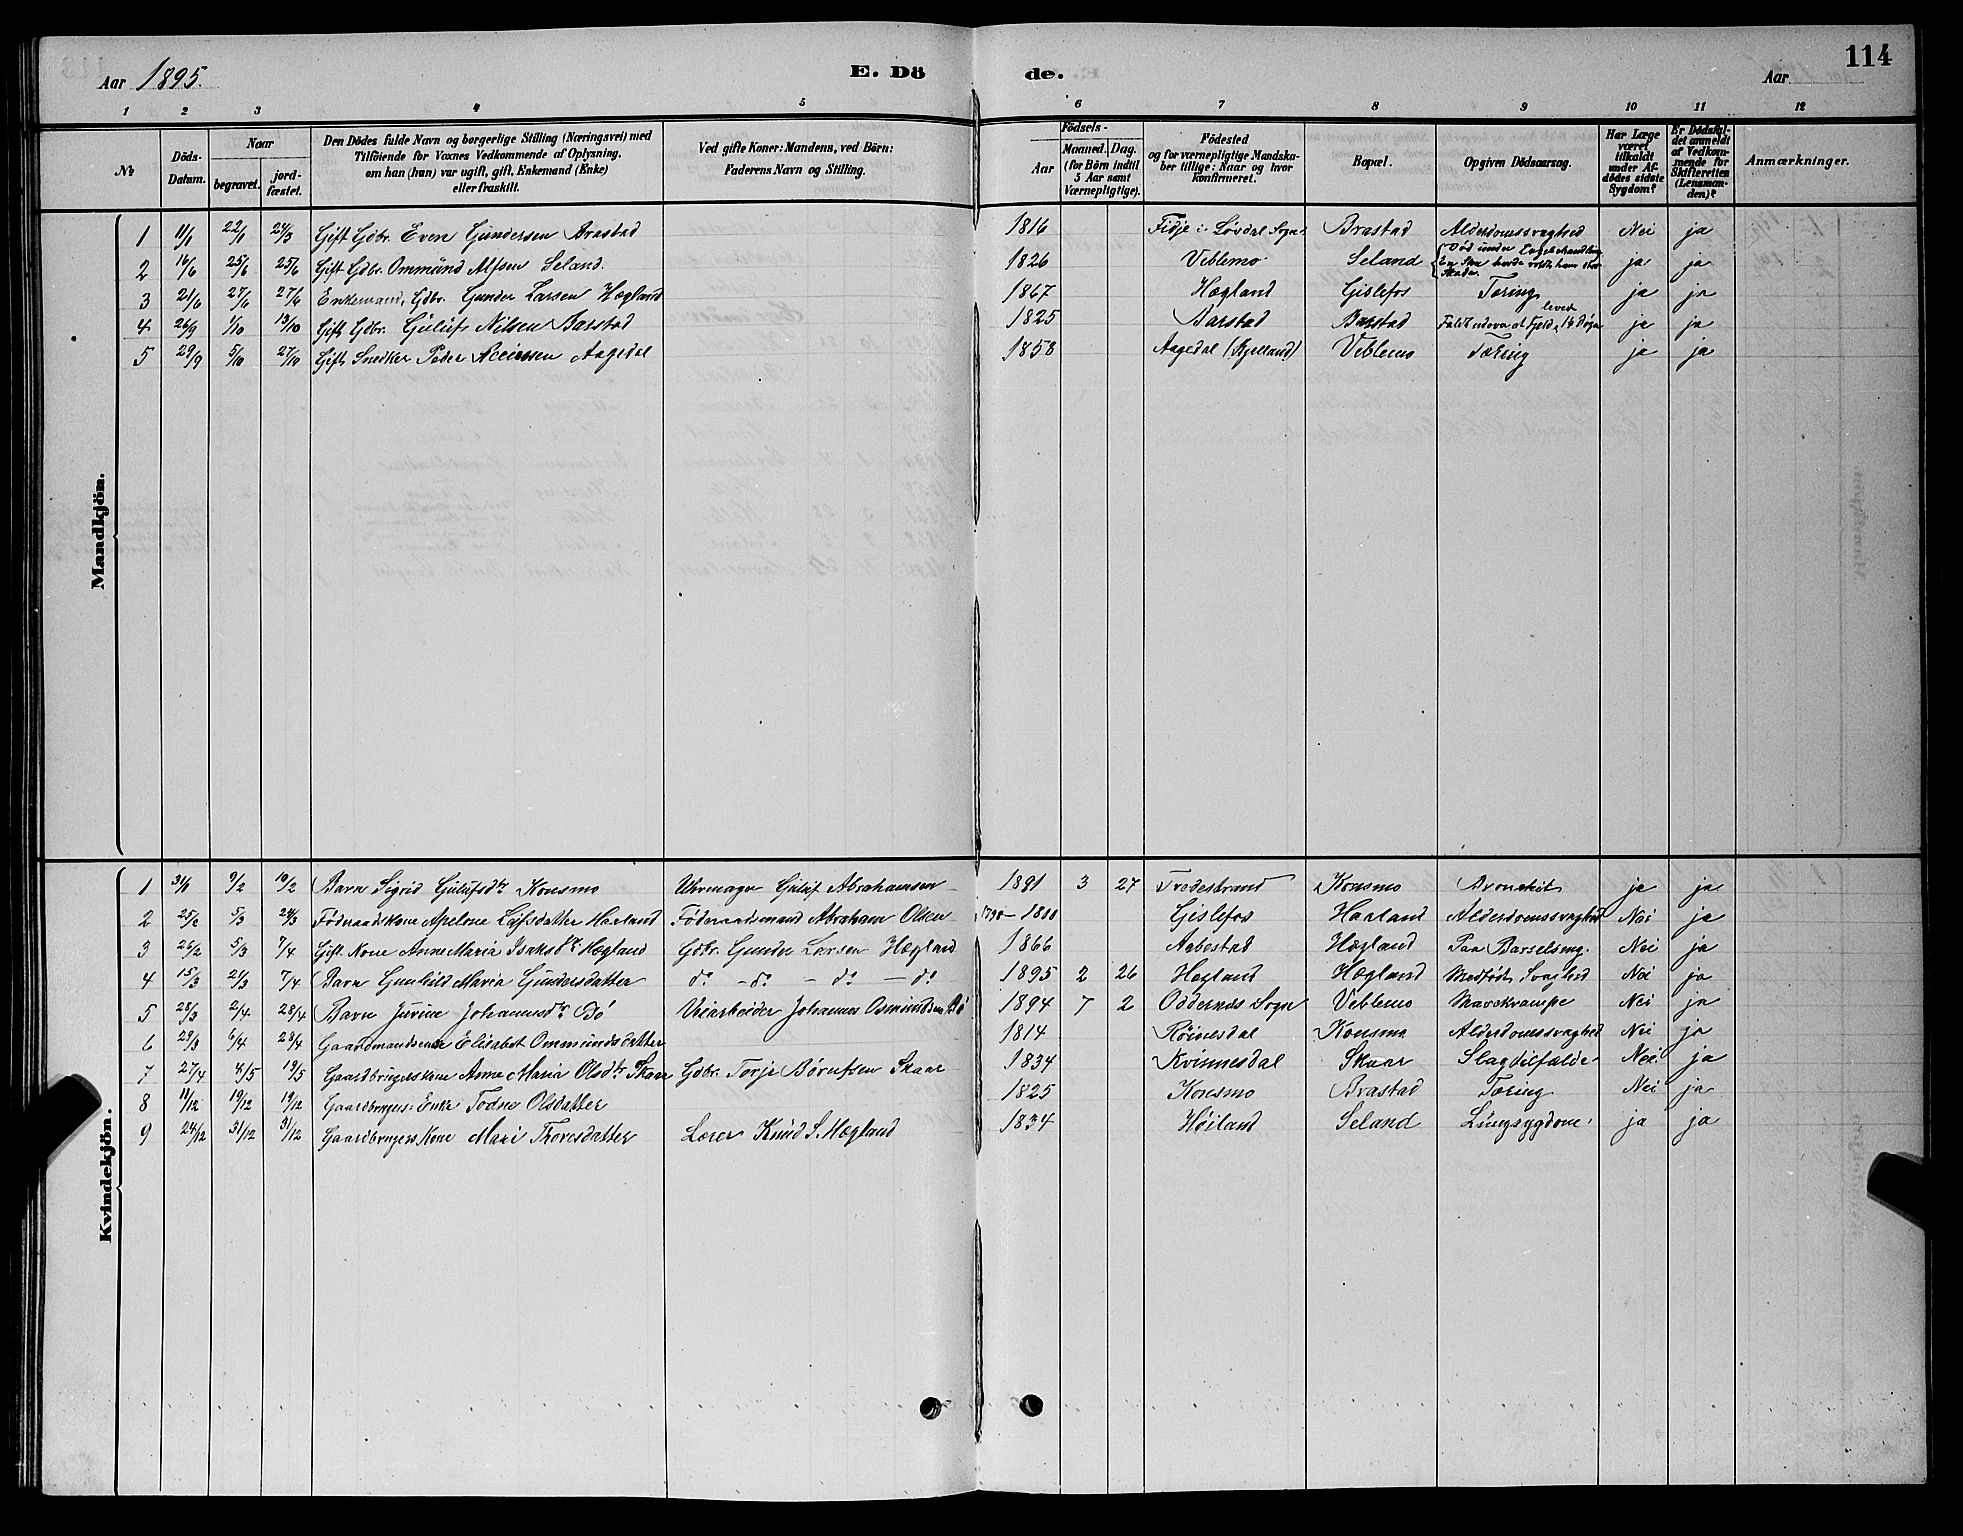 Aar 1895. E. Dö de. Aar 114
1 2 3 4 5 6 7 8 9 10 11 12
№ Döds-Datum. Naar begravet. jord-fæstet. Den Dödes fulde Navn og borgerlige Stilling (Næringsvei) med Tilföiende for Voxnes Vedkommende af Oplysning, om han (hun) var ugift, gift, Enkemand (Enke) eller fraskilt. Ved gifte Koner: Mandens, ved Börn: Faderens Navn og Stilling. Födsels- Aar Maaned. Dag. (for Börn indtil 5 Aar samt Værnepligtige). Födested og for værnepligtige Mandska-ber tillige: Naar og hvor konfirmeret. Bopæl. Opgiven Dödsaarsag. Har Læge været tilkaldt under Af-dödes sidste Sygdom? Er Dödsfal-det anmeldt af Vedkom-mende for Skifteretten (Lensman-den)? Anmærkninger.
Mandkjön.
1 11/1 22/1 24/3 Gift Gdbr. Even Gundersen Brastad 1816 Fidje i Løvdal Sogn Brastad Alderdomssvaghed Nei ja
2 16/6 25/6 25/6 Gift Gdbr. Ommund Alfsen Seland. 1826 Veblemo Seland Død under Lægebehandling En Sten havde voldt ham stor Skade. ja ja
3 21/6 27/6 27/6 Enkemand, Gdbr. Gunder Larsen Hægland 1867 Hægland Gislefos Tæring ja ja
4 26/9 1/10 13/10 Gift Gdbr. Guluf Nilsen Barstad 1825 Barstad Barstad Faldt udover et Fjeld, leved ja ja
5 29/9 5/10 27/10 Gift Snedker Peder Aagedal 1858 Aagedal (Bjelland) Veblemo Tæring ja ja
Kvindekjön.
1 31/1 9/2 10/2 Barn Sigrid Gulufsdtr Konsmo Uhrmager Guluf Abrahamsen 1891 3 27 Tvedestrand Konsmo Bronchit ja ja
2 25/2 5/3 24/3 Føderaadskone Apelone Leifsdatter Haaland Føderaadsmand Abraham Olsen 1798 – 1800 Gislefos Haaland Alderdomssvaghed Nei ja
3 26/2 5/3 7/4 Gift Kone Anne Maria Isaksdtr Hægland Gdbr. Gunder Larsen Hægland 1866 Aabestad Hægland Paa Barselseng. Nei ja
4 15/3 21/3 7/4 Barn Gunhild Maria Gundersdatter do – do – do – do 1895 2 26 Hægland Hægland Medfødt Svaghed Nei ja
5 28/3 2/4 28/4 Barn Jurine Johannesdtr Bø Veiarbeider Johannes Osmundsen Bø 1894 7 2 Oddernæs Sogn Veblemo Mavekrampe Nei ja
6 29/3 6/4 28/4 Gaardmandsenke Elisabet Ommundsdatter 1814 Røinesdal Konsmo Alderdomssvaghed Nei ja
7 27/4 4/5 19/5 Gaardbrugerskone Anne Maria Olsdtr Skaar Gdbr. Torje Børufsen Skaar 1834 Kvinnesdal Skaar Slagtilfælde Nei ja
8 11/12 19/12 19/12 Gaardbrugers Enke Todne Olsdatter 1825 Konsmo Brastad Tæring Nei ja
9 24/12 31/12 31/12 Gaardbrugers Kone Mari Thoresdatter Lærer Knud S. Mægland 1834 Høiland Seland Lungsygdom ja ja